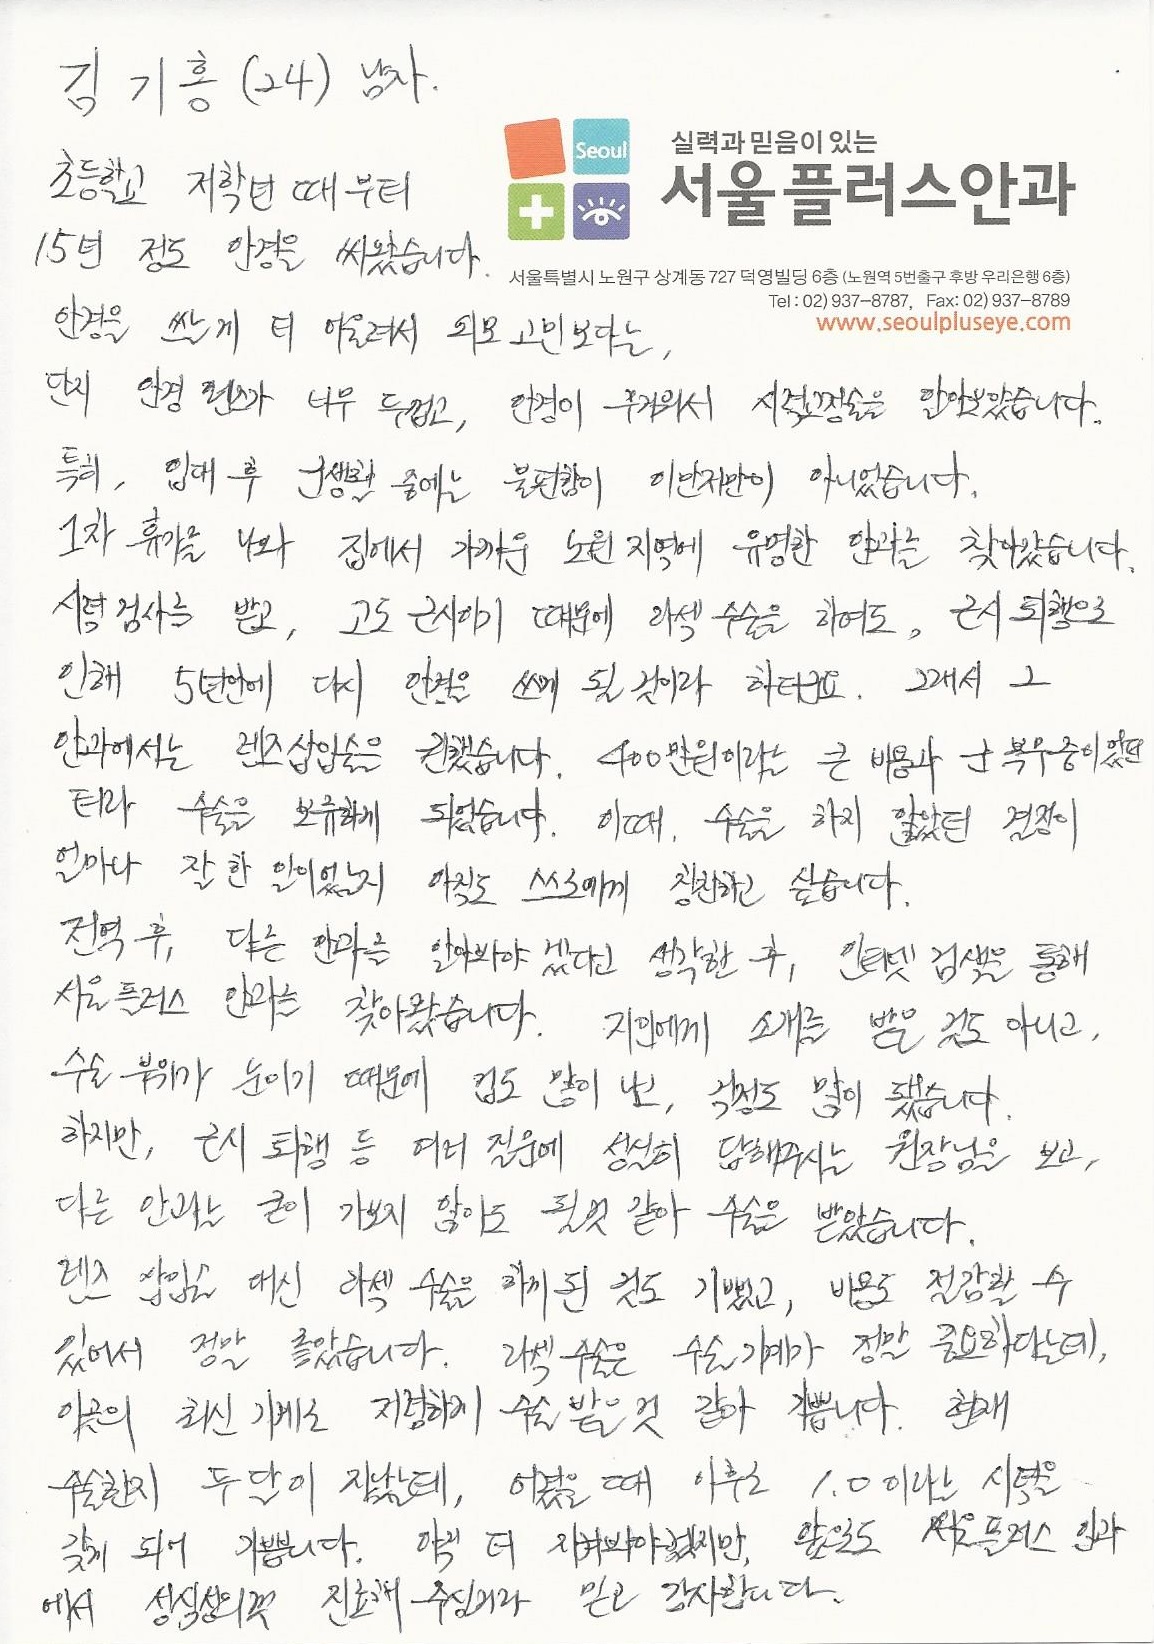 김 기 홍 (24) 남자.
Seoul
실력과 믿음이 있는
서울플러스안과
서울특별시 노원구 상계동 727 덕영빌딩 6층 (노원역 5번출구 후방 우리은행 6층)
Tel : 02) 937-8787, Fax: 02) 937-8789
www.seoulpluseye.com
초등학교 저학년 때부터
15년 정도 안경을 써왔습니다.
안경을 쓰는게 더 어울려서 외모 고민보다는,
단지 안경 렌즈가 너무 두껍고, 안경이 무거워서 시력교정술을 알아보았습니다.
특히, 입대 후 군생활 중에는 불편함이 이만저만이 아니었습니다.
1차 휴가를 나와 집에서 가까운 노원 지역에 유명한 안과를 찾아갔습니다.
시력 검사를 받고, 고도 근시이기 때문에 라섹 수술을 하여도, 근시 퇴행으로
인해 5년안에 다시 안경을 쓰게 될 것이라 하더군요. 그래서 그
안과에서는 렌즈삽입술을 권했습니다. 400만원이라는 큰 비용과 군 복무중이었던
터라 수술을 보류하게 되었습니다. 이때, 수술을 하지 않았던 결정이
얼마나 잘 한 일이었는지 아직도 스스로에게 칭찬하고 싶습니다.
전역 후, 다른 안과를 알아봐야 겠다고 생각한 후, 인터넷 검색을 통해
서울플러스 안과를 찾아왔습니다. 지인에게 소개를 받은 것도 아니고,
수술 부위가 눈이기 때문에 겁도 많이 났고, 걱정도 많이 됐습니다.
하지만, 근시 퇴행 등 여러 질문에 성실히 답해주시는 원장님을 보고,
다른 안과는 굳이 가보지 않아도 될것 같아 수술을 받았습니다.
렌즈 삽입술 대신 라섹 수술을 하게 된 것도 기뻤고, 비용도 절감할 수
있어서 정말 좋았습니다. 라섹 수술은 수술기계가 정말 중요하다는데,
이곳의 최신 기계로 저렴하게 수술 받은 것 같아 기쁩니다. 현재
수술한지 두 달이 지났는데, 어렸을 때 이후로 1.0 이라는 시력을
갖게 되어 기쁩니다. 아직 더 지켜봐야겠지만, 앞으로도 서울플러스 안과
에서 성심성의껏 진료해 주실거라 믿고 감사합니다.